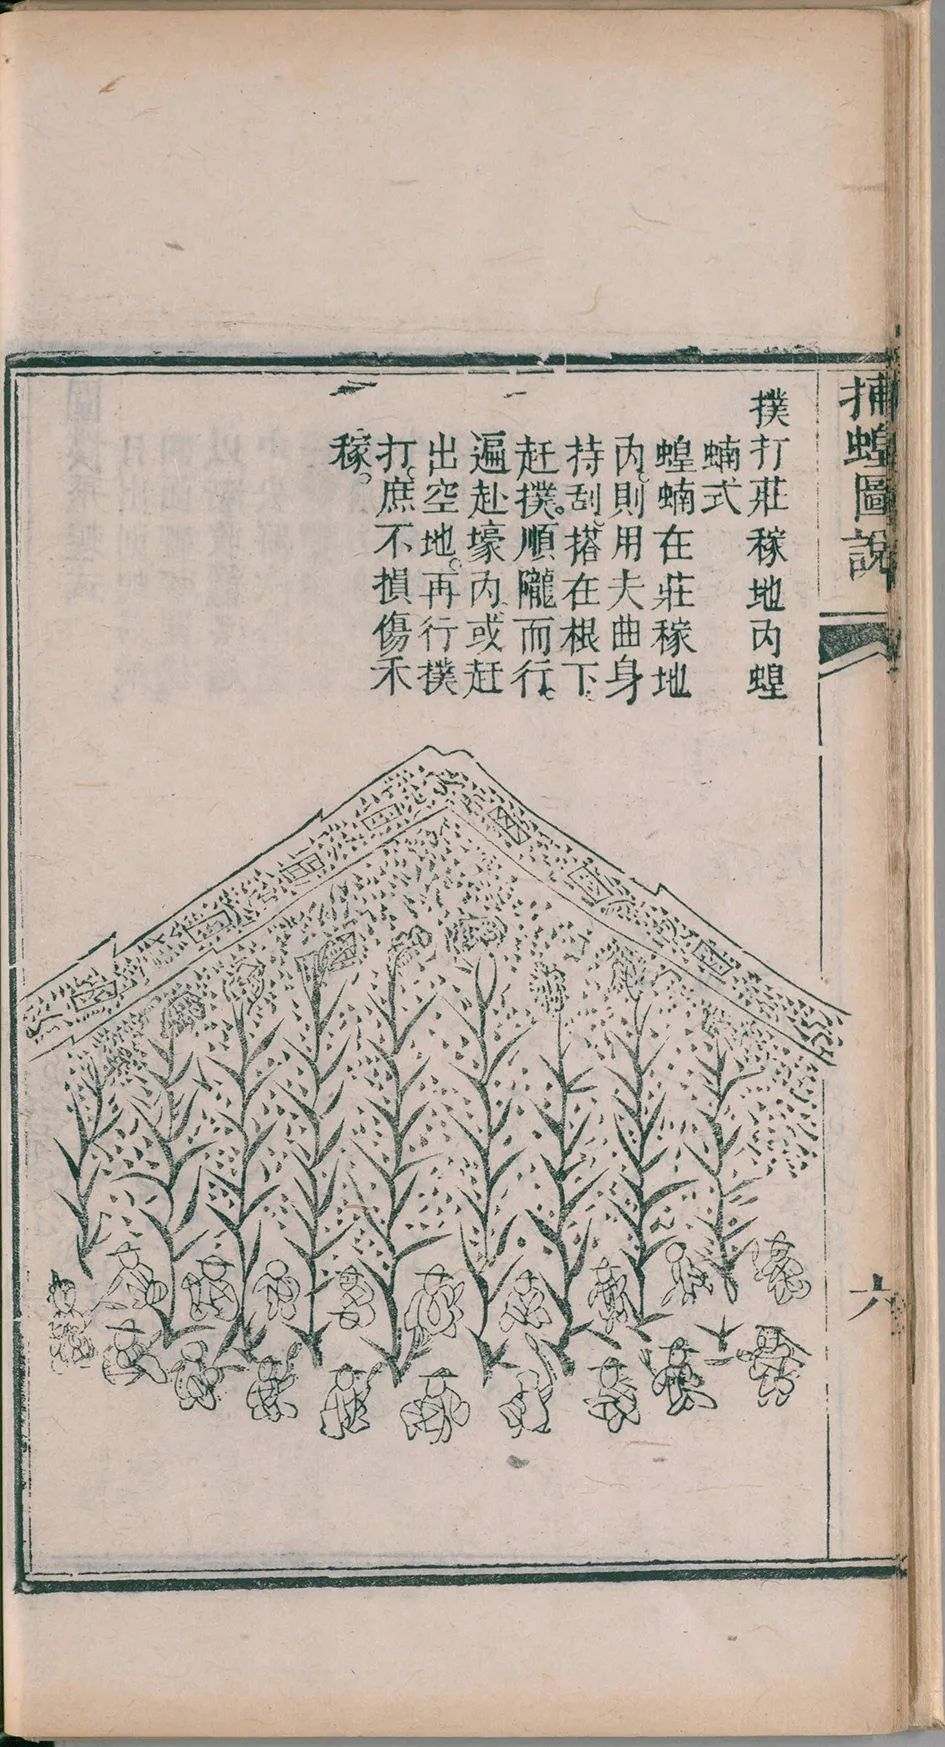 捕蝗圖說
六
撲打莊稼地内蝗
蝻式
蝗蝻在莊稼地
内。則用夫曲身
持刮。搭在根下。
赶撲。順隴而行。
遍赴壕内。或赶
出空地。再行撲
打。庶不損傷禾
稼。